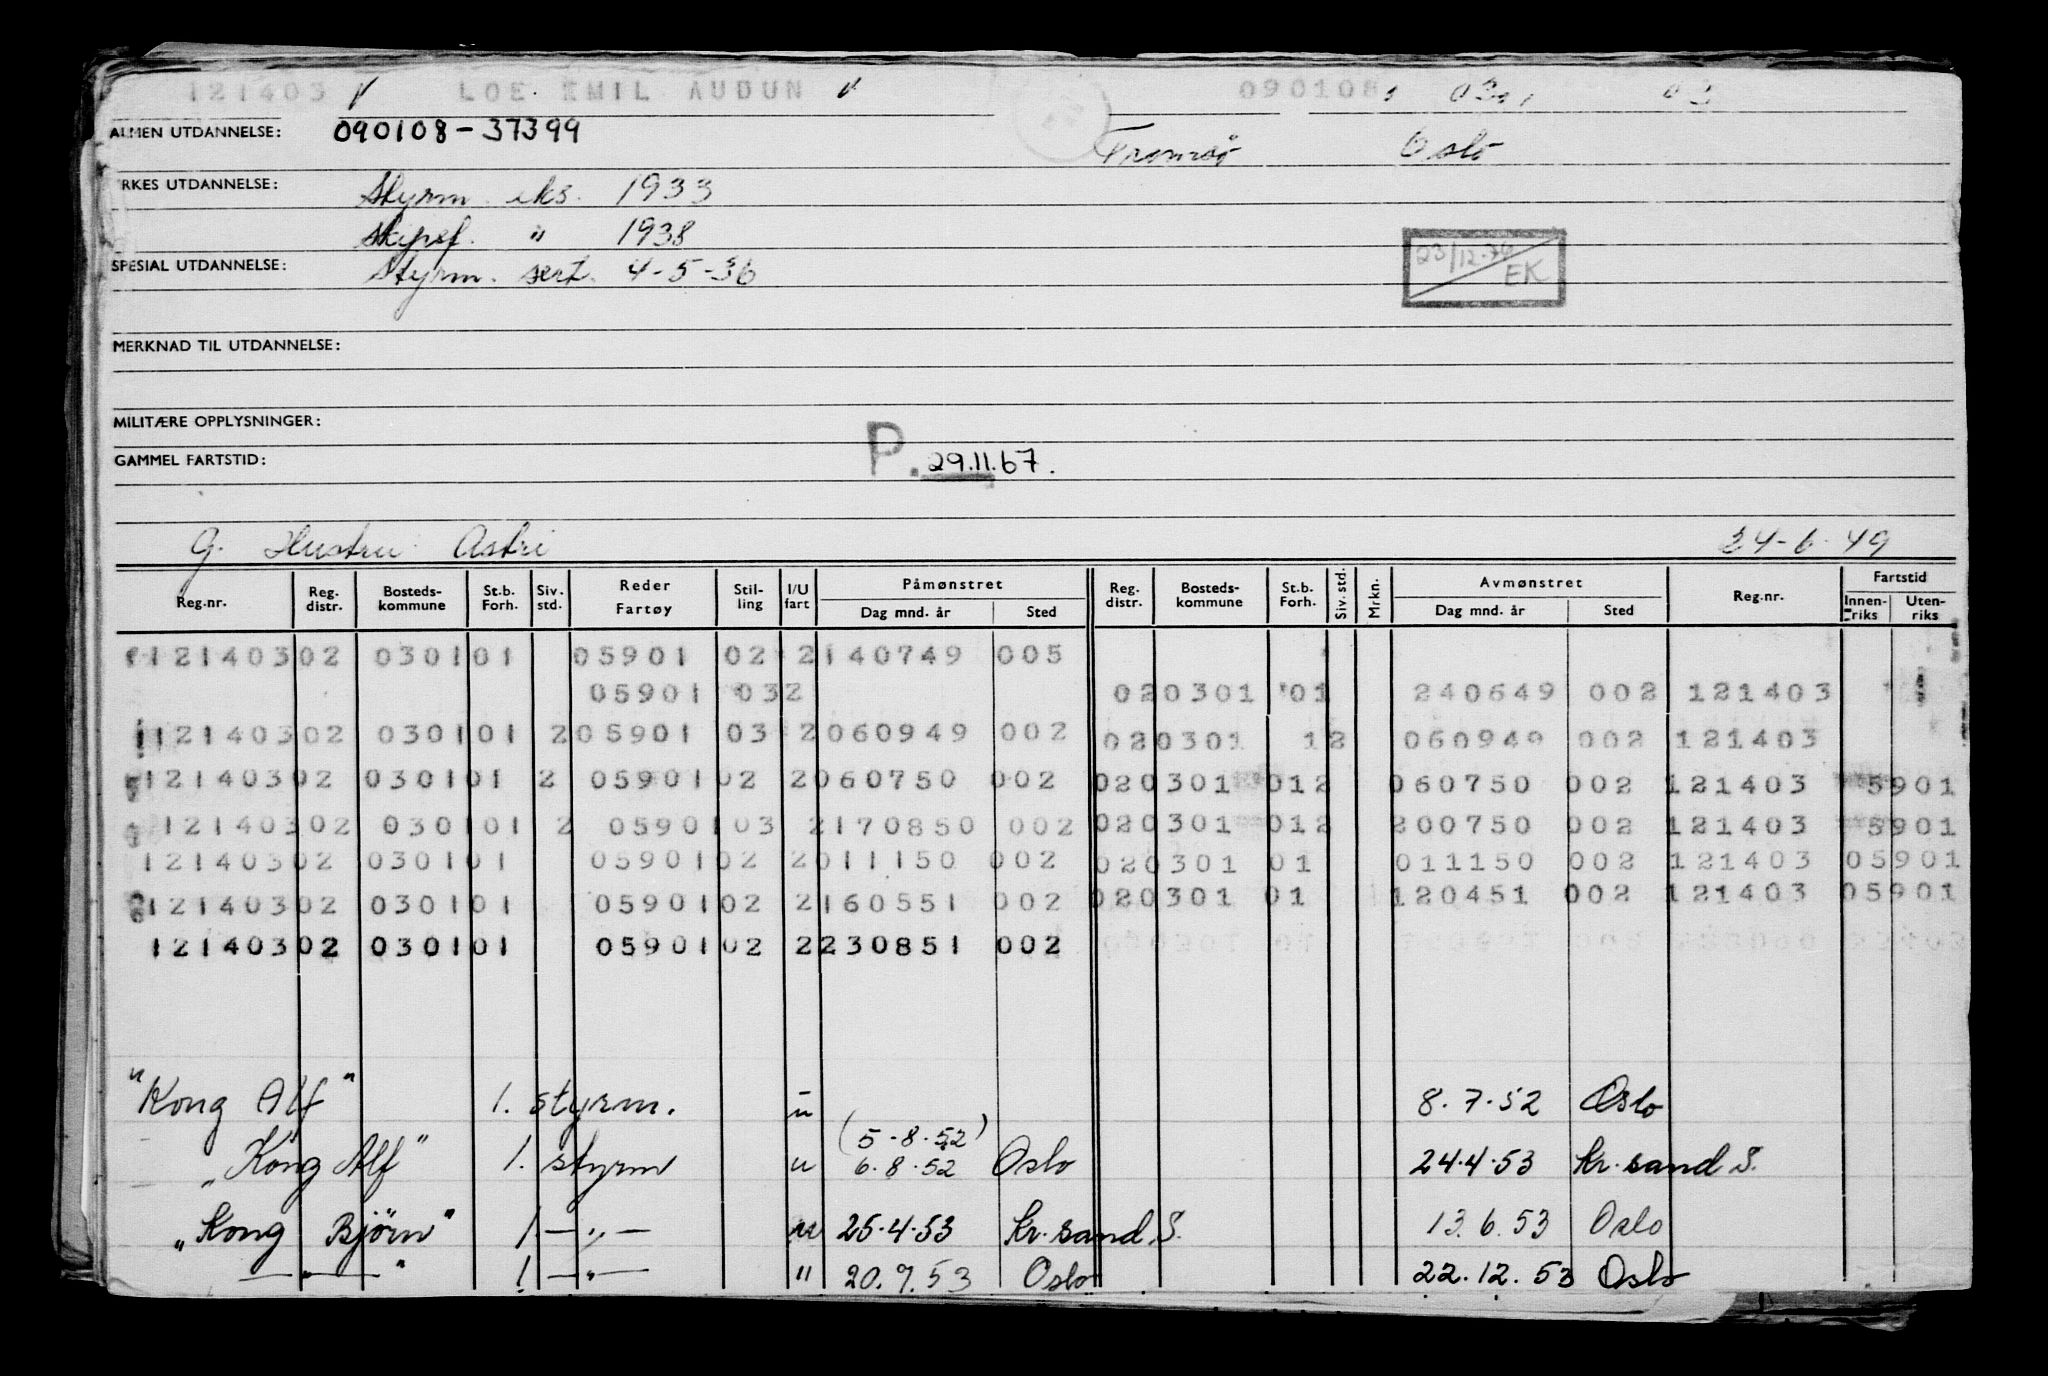 121403 LOE EMIL AUDUN 090108 03
ALMEN UTDANNELSE: 090108-37399 Tromsö Oslo
RKES UTDANNELSE: Styrm. eks. 1933
Skipsf. " 1938
SPESIAL UTDANNELSE: Styrm. sert. 4-5-36
23/12-76 EK
MERKNAD TIL UTDANNELSE:
MILITÆRE OPPLYSNINGER:
GAMMEL FARTSTID: P. 29.11.67.
G. Hustru Astri 24-6-49
Reg.nr. Reg. distr. Bosteds- kommune St.b. Forh. Siv. std. Reder Fartøy Stil- ling I/U fart Påmønstret Dag mnd. år Sted Reg. distr. Bosteds- kommune St.b. Forh. Siv. std. Mrkn. Avmønstret Dag mnd. år Sted Reg.nr. Fartstid Innen- riks Uten- riks
121403 02 0301 01 05901 02 2 140749 005
05901 03 2 02 0301 01 240649 002 121403
121403 02 0301 01 2 05901 03 2 060949 002 02 0301 1 2 060949 002 121403
121403 02 0301 01 2 05901 02 2 060750 002 02 0301 01 2 060750 002 121403 5901
121403 02 0301 01 2 05901 03 2 170850 002 02 0301 01 2 200750 002 121403 5901
121403 02 0301 01 05901 02 2 011150 002 02 0301 01 011150 002 121403 05901
121403 02 0301 01 05901 02 2 160551 002 02 0301 01 120451 002 121403 05901
121403 02 0301 01 05901 02 2 230851 002
"Kong Alf" 1. styrm. u 8.7.52 Oslo
(5.8.52)
"Kong Alf" 1. styrm u 6.8.52 Oslo 24.4.53 Kr.sand S.
"Kong Björn" 1 — " — u 25.4.53 Kr.sand S. 13.6.53 Oslo
— " — " 1 — " — " 20.7.53 Oslo 22.12.53 Oslo